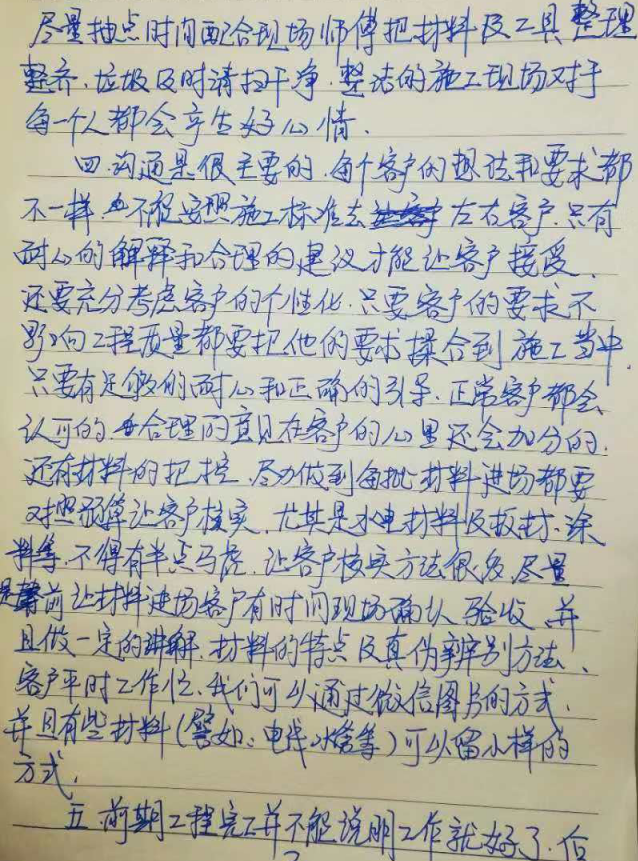 尽量抽点时间配合现场师傅把材料及工具整理
整齐、垃圾及时清扫干净、整洁的施工现场对于
每一个人都会产生好心情、
四、沟通是很主要的、每个客户的想法和要求都
不一样 不能按照施工标准去左右客户、只有
耐心的解释和合理的建议才能让客户接受、
还要充分考虑客户的个性化、只要客户的要求不
影响工程质量都要把他的要求揉合到施工当中、
只要有足够的耐心和正确的引导、正常客户都会
认可的、合理的意见在客户的心里还会加分的、
还有材料的把控、尽力做到每批材料进场都要
对照预算让客户核实、尤其是水电材料及板材、涂
料等、不得有半点马虎、让客户核实方法很多、尽量
提前让材料进场客户有时间现场确认验收、并
且做一定的讲解、材料的特点及真伪辨别方法、
客户平时工作忙、我们可以通过微信图片的方式、
并且有些材料(譬如:电线水管等)可以留小样的
方式、
五、前期工程完工并不能说明工作就好了、后